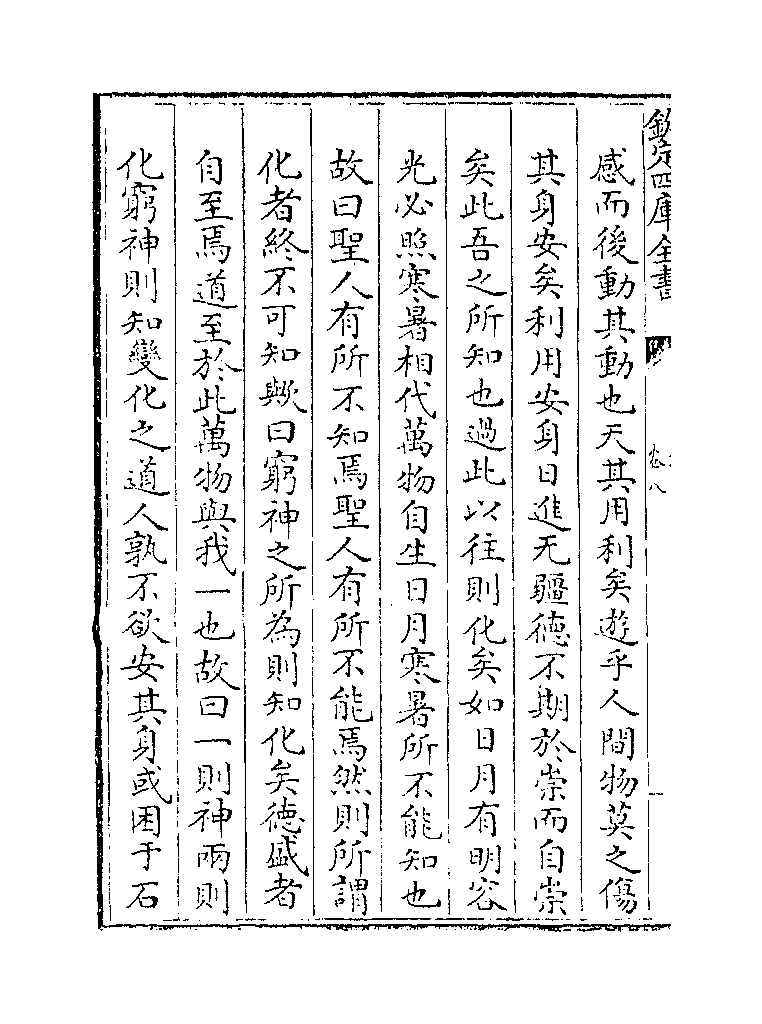 欽定四庫全書
卷八
感而後動其動也天其用利矣遊乎人間物莫之傷
其身安矣利用安身日進无疆德不期於崇而自崇
矣此吾之所知也過此以往則化矣如日月有明容
光必照寒暑相代萬物自生日月寒暑所不能知也
故曰聖人有所不知焉聖人有所不能焉然則所謂
化者終不可知歟曰窮神之所為則知化矣德盛者
自至焉道至於此萬物與我一也故曰一則神兩則
化窮神則知變化之道人孰不欲安其身或困于石